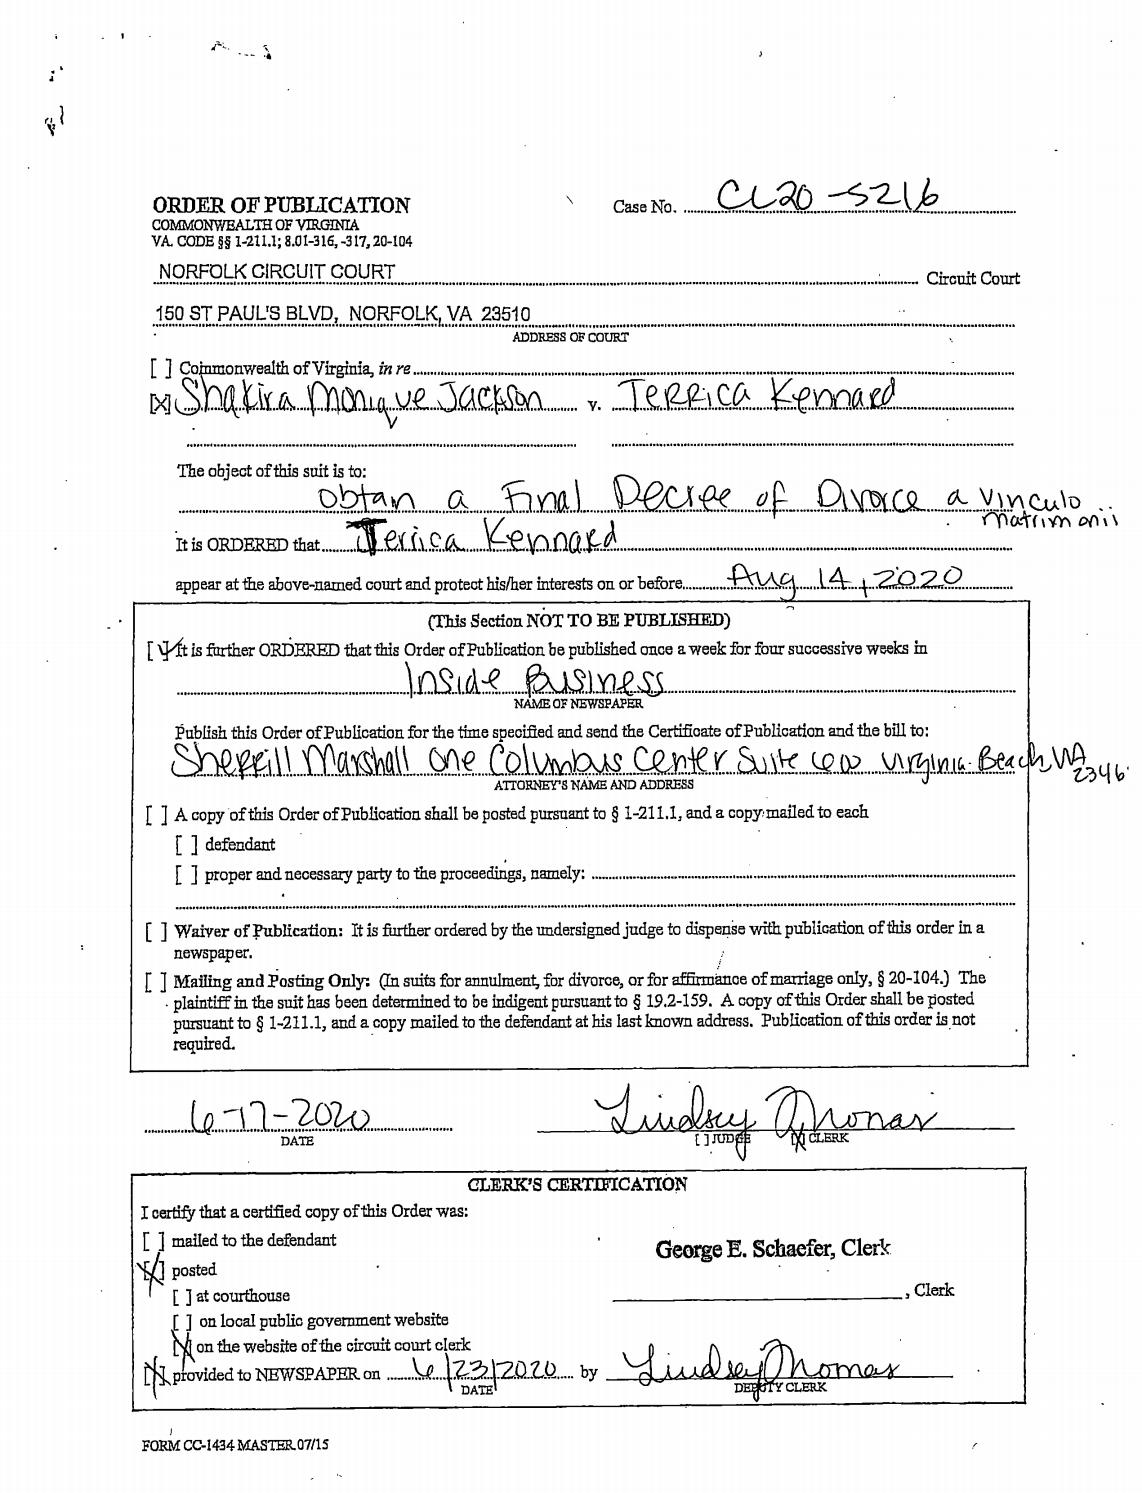 ORDER OF PUBLICATION
Case No. CL20-5216
COMMONWEALTH OF VIRGINIA
VA. CODE §§ 1-211.1; 8.01-316, -317, 20-104
NORFOLK CIRCUIT COURT Circuit Court
150 ST PAUL'S BLVD, NORFOLK, VA 23510
ADDRESS OF COURT
[ ] Commonwealth of Virginia, in re
[X] Shakira Monique Jackson v. Terrica Kennard
The object of this suit is to:
obtan a Final Decree of Divorce a vinculo
matrimonii
It is ORDERED that Terrica Kennard
appear at the above-named court and protect his/her interests on or before Aug 14, 2020
(This Section NOT TO BE PUBLISHED)
[✓] It is further ORDERED that this Order of Publication be published once a week for four successive weeks in
Inside Business
NAME OF NEWSPAPER
Publish this Order of Publication for the time specified and send the Certificate of Publication and the bill to:
Sherrill Marshall One Columbus Center Suite 600 Virginia Beach, VA
2346
ATTORNEY'S NAME AND ADDRESS
[ ] A copy of this Order of Publication shall be posted pursuant to § 1-211.1, and a copy mailed to each
[ ] defendant
[ ] proper and necessary party to the proceedings, namely:
[ ] Waiver of Publication: It is further ordered by the undersigned judge to dispense with publication of this order in a
newspaper.
[ ] Mailing and Posting Only: (In suits for annulment, for divorce, or for affirmance of marriage only, § 20-104.) The
plaintiff in the suit has been determined to be indigent pursuant to § 19.2-159. A copy of this Order shall be posted
pursuant to § 1-211.1, and a copy mailed to the defendant at his last known address. Publication of this order is not
required.
6-17-2020 Lindsey Thomas
DATE [ ] JUDGE [X] CLERK
CLERK'S CERTIFICATION
I certify that a certified copy of this Order was:
[ ] mailed to the defendant
George E. Schaefer, Clerk
[X] posted
[ ] at courthouse , Clerk
[ ] on local public government website
[X] on the website of the circuit court clerk
[X] provided to NEWSPAPER on 6/23/2020 by Lindsey Thomas
DATE DEPUTY CLERK
FORM CC-1434 MASTER 07/15